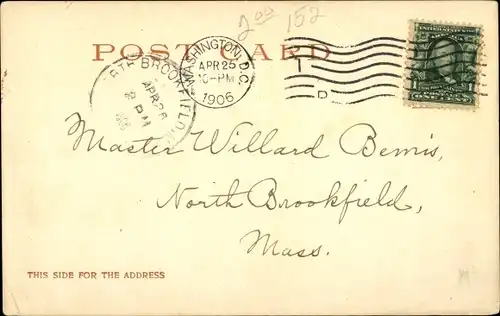 2 00 152
POST CARD
WASHINGTON, D.C.
APR 25
10-PM
1906
NORTH BROOKFIELD
APR 26
2 PM
Master Willard Bemis,
North Brookfield,
Mass.
THIS SIDE FOR THE ADDRESS